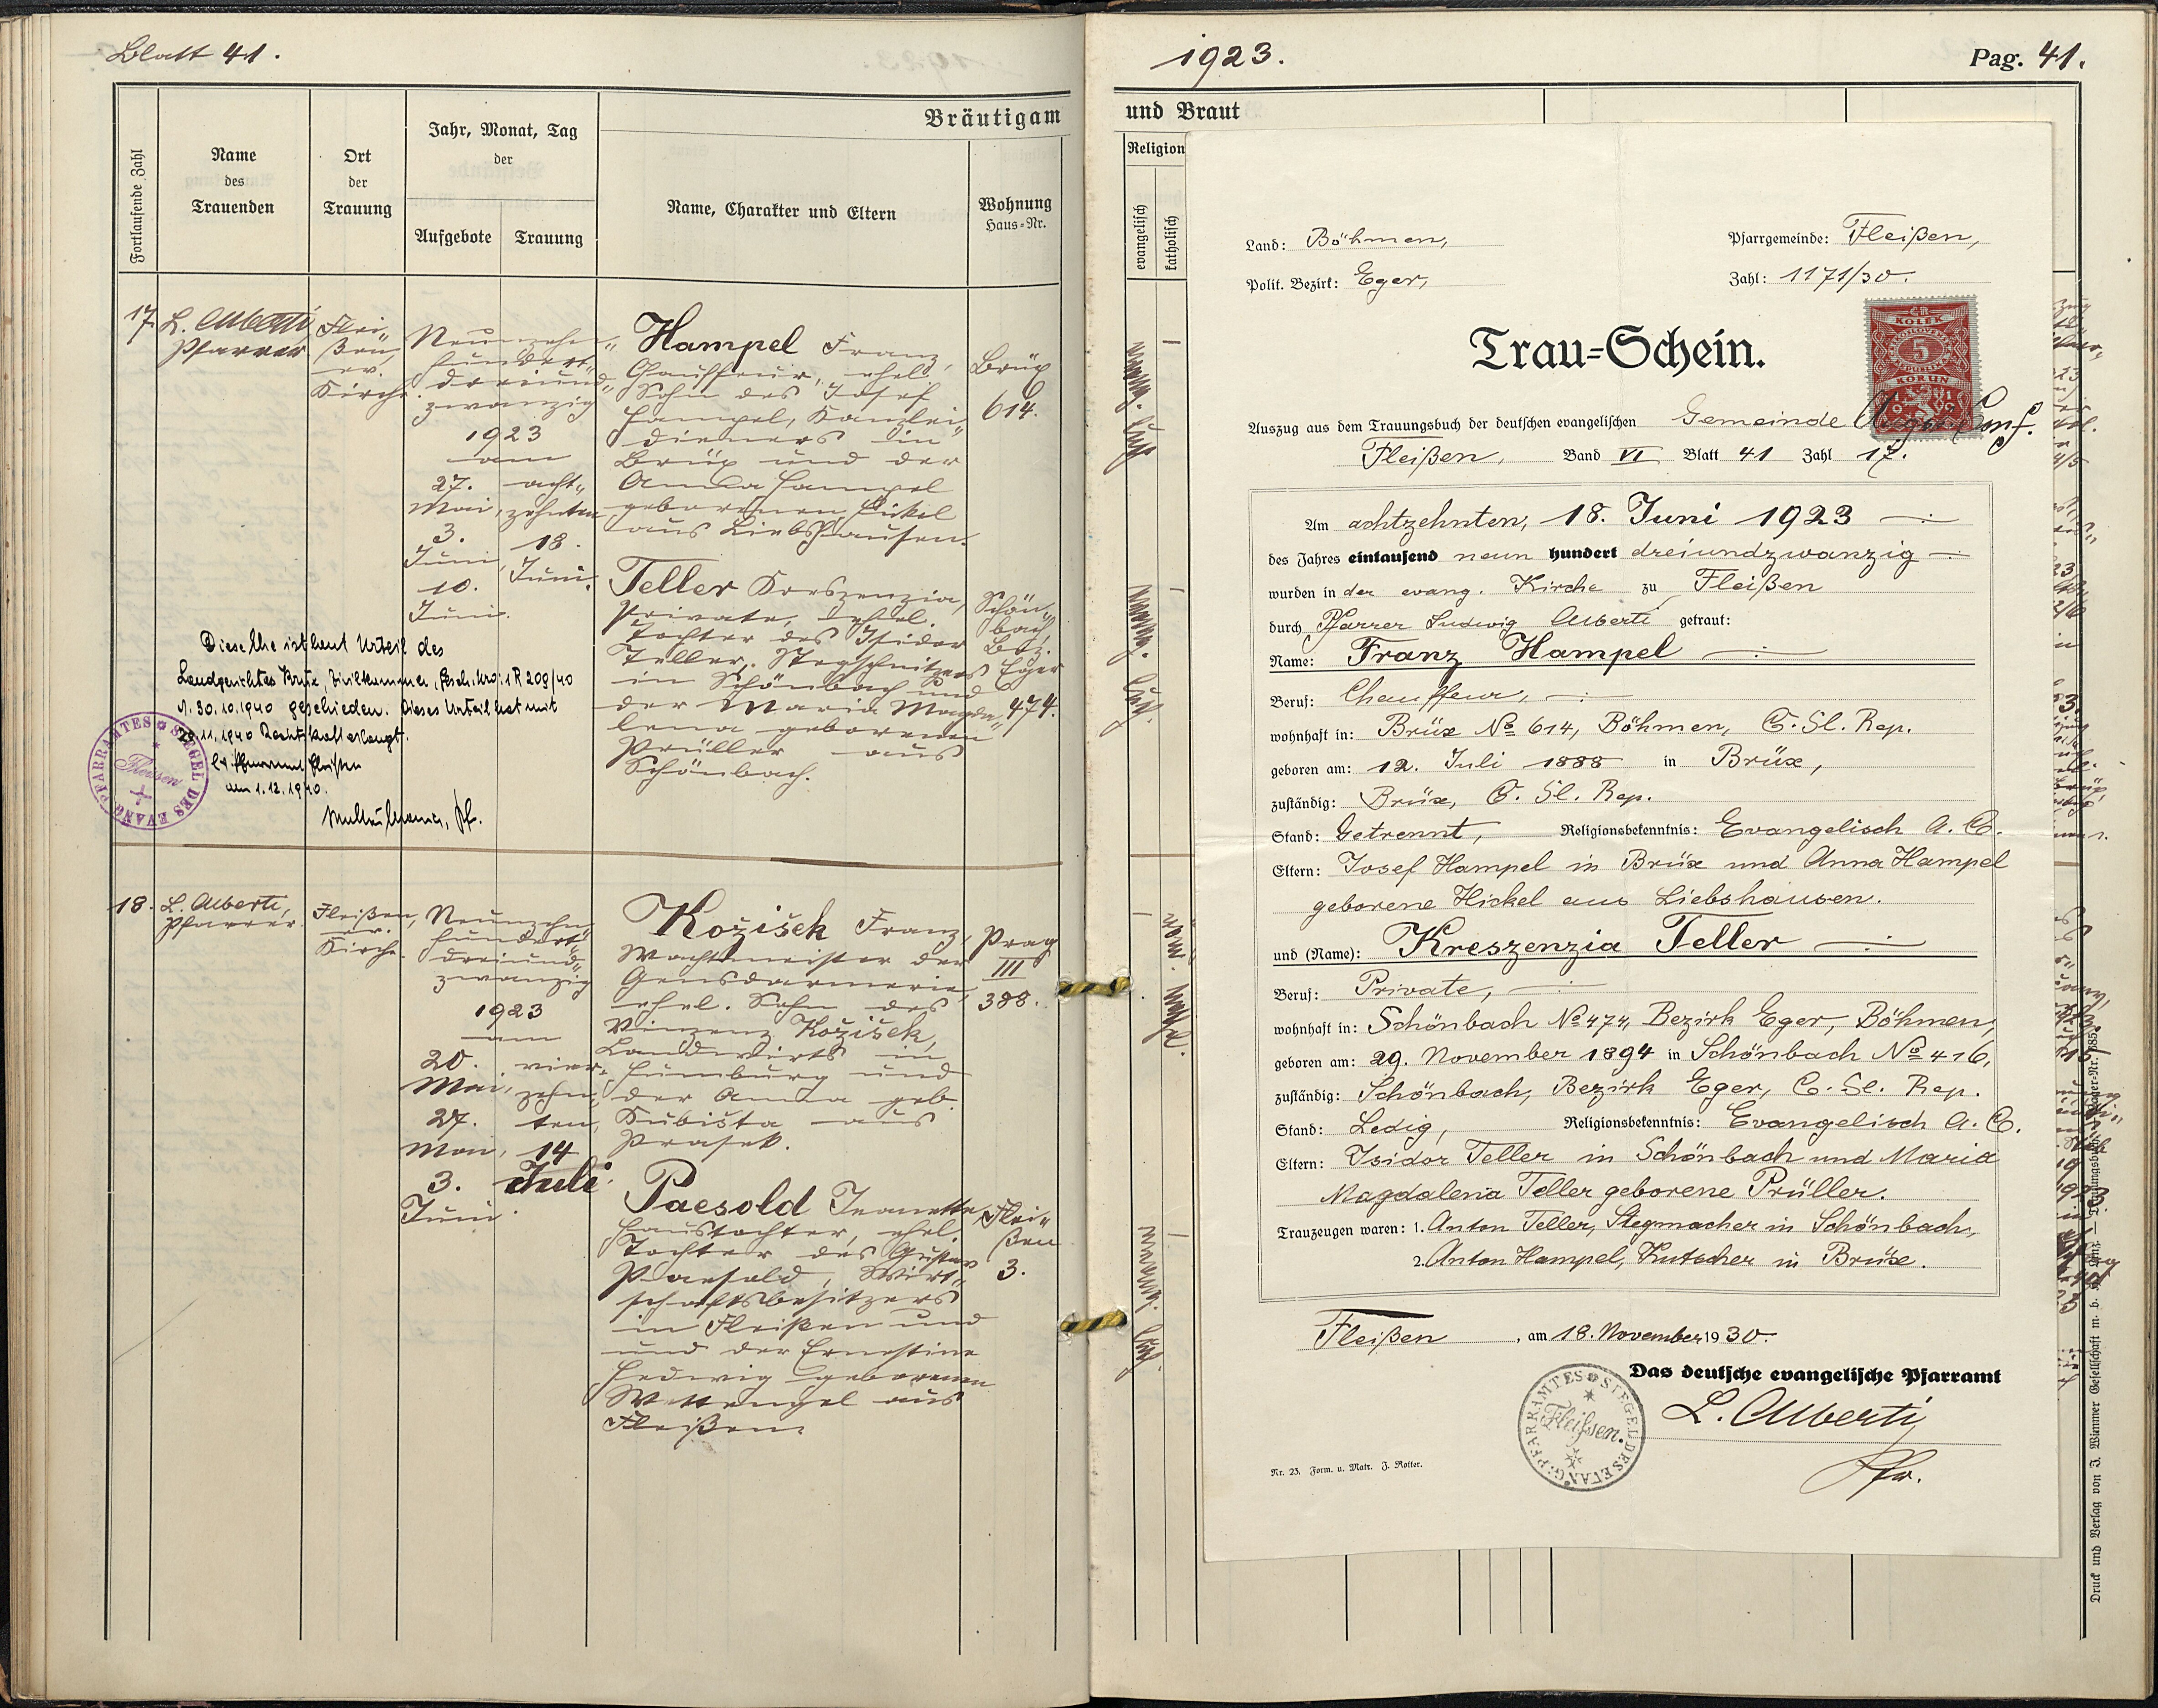 Blatt 41.
Bräutigam
Fortlaufende Zahl
Name
des
Trauenden
Ort
der
Trauung
Jahr, Monat, Tag
der
Aufgebote
Trauung
Name, Charakter und Eltern
Wohnung
Haus-Nr.
17.
L. Alberti
Pfarrer
Flei-
ßen,
ev.
Kirche.
Neunzehn-
hundert-
dreiund-
zwanzig
1923
am
27.
Mai,
3.
Juni,
10.
Juni.
acht-
zehnten
18.
Juni.
Hampel Franz,
Chauffeur, ehel.
Sohn des Josef
Hampel, Kanzlei-
dieners in
Brüx und der
Anna Hampel
geborenen Hickel
aus Liebshausen.
Brüx
614.
Teller Kreszenzia,
Private, ehel.
Tochter des Isidor
Teller, Stegschnitzers
in Schönbach und
der Maria Magda-
lena geborenen
Prüller aus
Schönbach.
Schön-
bach,
Bez.
Eger
474.
Diese Ehe ist laut Urteil des
Landgerichtes Brüx, Zivilkammer, Gesch. Nro: 1 R 209/40
v. 30.10.1940 geschieden. Dieses Urteil hat mit
29.11.1940 Rechtskraft erlangt.
Ev. Pfarramt Fleißen
am 1.12.1940.
SIEGEL DES EVANG. PFARRAMTES
Fleissen
18.
L. Alberti,
Pfarrer.
Fleißen,
ev.
Kirche.
Neunzehn-
hundert-
dreiund-
zwanzig
1923
am
20.
Mai,
27.
Mai,
3.
Juni.
vier-
zehn-
ten,
14
Juli.
Kožišek Franz,
Wachtmeister der
Gensdarmerie,
ehel. Sohn des
Vinzenz Kožišek,
Landwirts in
Humburg und
der Anna geb.
Kubišta aus
Prasek.
Prag
III
388.
Paesold Jeanette
Haustochter, ehel.
Tochter des Gustav
Paesold, Wirt-
schaftsbesitzers
in Fleißen und
und der Ernestine
Hedwig geborenen
Wettengel aus
Fleißen
Flei-
ßen
3.
1923.
Pag. 41.
und Braut
Religion
evangelisch
katholisch
Land: Böhmen,
Pfarrgemeinde: Fleißen,
Polit. Bezirk: Eger,
Zahl: 1171/30.
Trau-Schein.
KOLEK
5
KORUN
1919
Auszug aus dem Trauungsbuch der deutschen evangelischen Gemeinde Augsb. Conf.
Fleißen, Band VI Blatt 41 Zahl 17.
Am achtzehnten, 18. Juni 1923
des Jahres eintausend neun hundert dreiundzwanzig
wurden in der evang. Kirche zu Fleißen
durch Pfarrer Ludwig Alberti getraut:
Name: Franz Hampel
Beruf: Chauffeur,
wohnhaft in: Brüx No 614, Böhmen, C. Sl. Rep.
geboren am: 12. Juli 1888 in Brüx,
zuständig: Brüx, C. Sl. Rep.
Stand: Getrennt, Religionsbekenntnis: Evangelisch A. C.
Eltern: Josef Hampel in Brüx und Anna Hampel
geborene Hickel aus Liebshausen.
und (Name): Kreszenzia Teller
Beruf: Private,
wohnhaft in: Schönbach No 474, Bezirk Eger, Böhmen,
geboren am: 29. November 1894 in Schönbach No 416,
zuständig: Schönbach, Bezirk Eger, C. Sl. Rep.
Stand: Ledig, Religionsbekenntnis: Evangelisch A. C.
Eltern: Isidor Teller in Schönbach und Maria
Magdalena Teller geborene Prüller.
Trauzeugen waren: 1. Anton Teller, Stegmacher in Schönbach,
2. Anton Hampel, Kutscher in Brüx.
Fleißen, am 18. November 1930.
Das deutsche evangelische Pfarramt
L. Alberti,
Pfr.
SIEGEL DES EVANG: PFARRAMTES
Fleißsen.
Nr. 23. Form. u. Matr. J. Rotter.